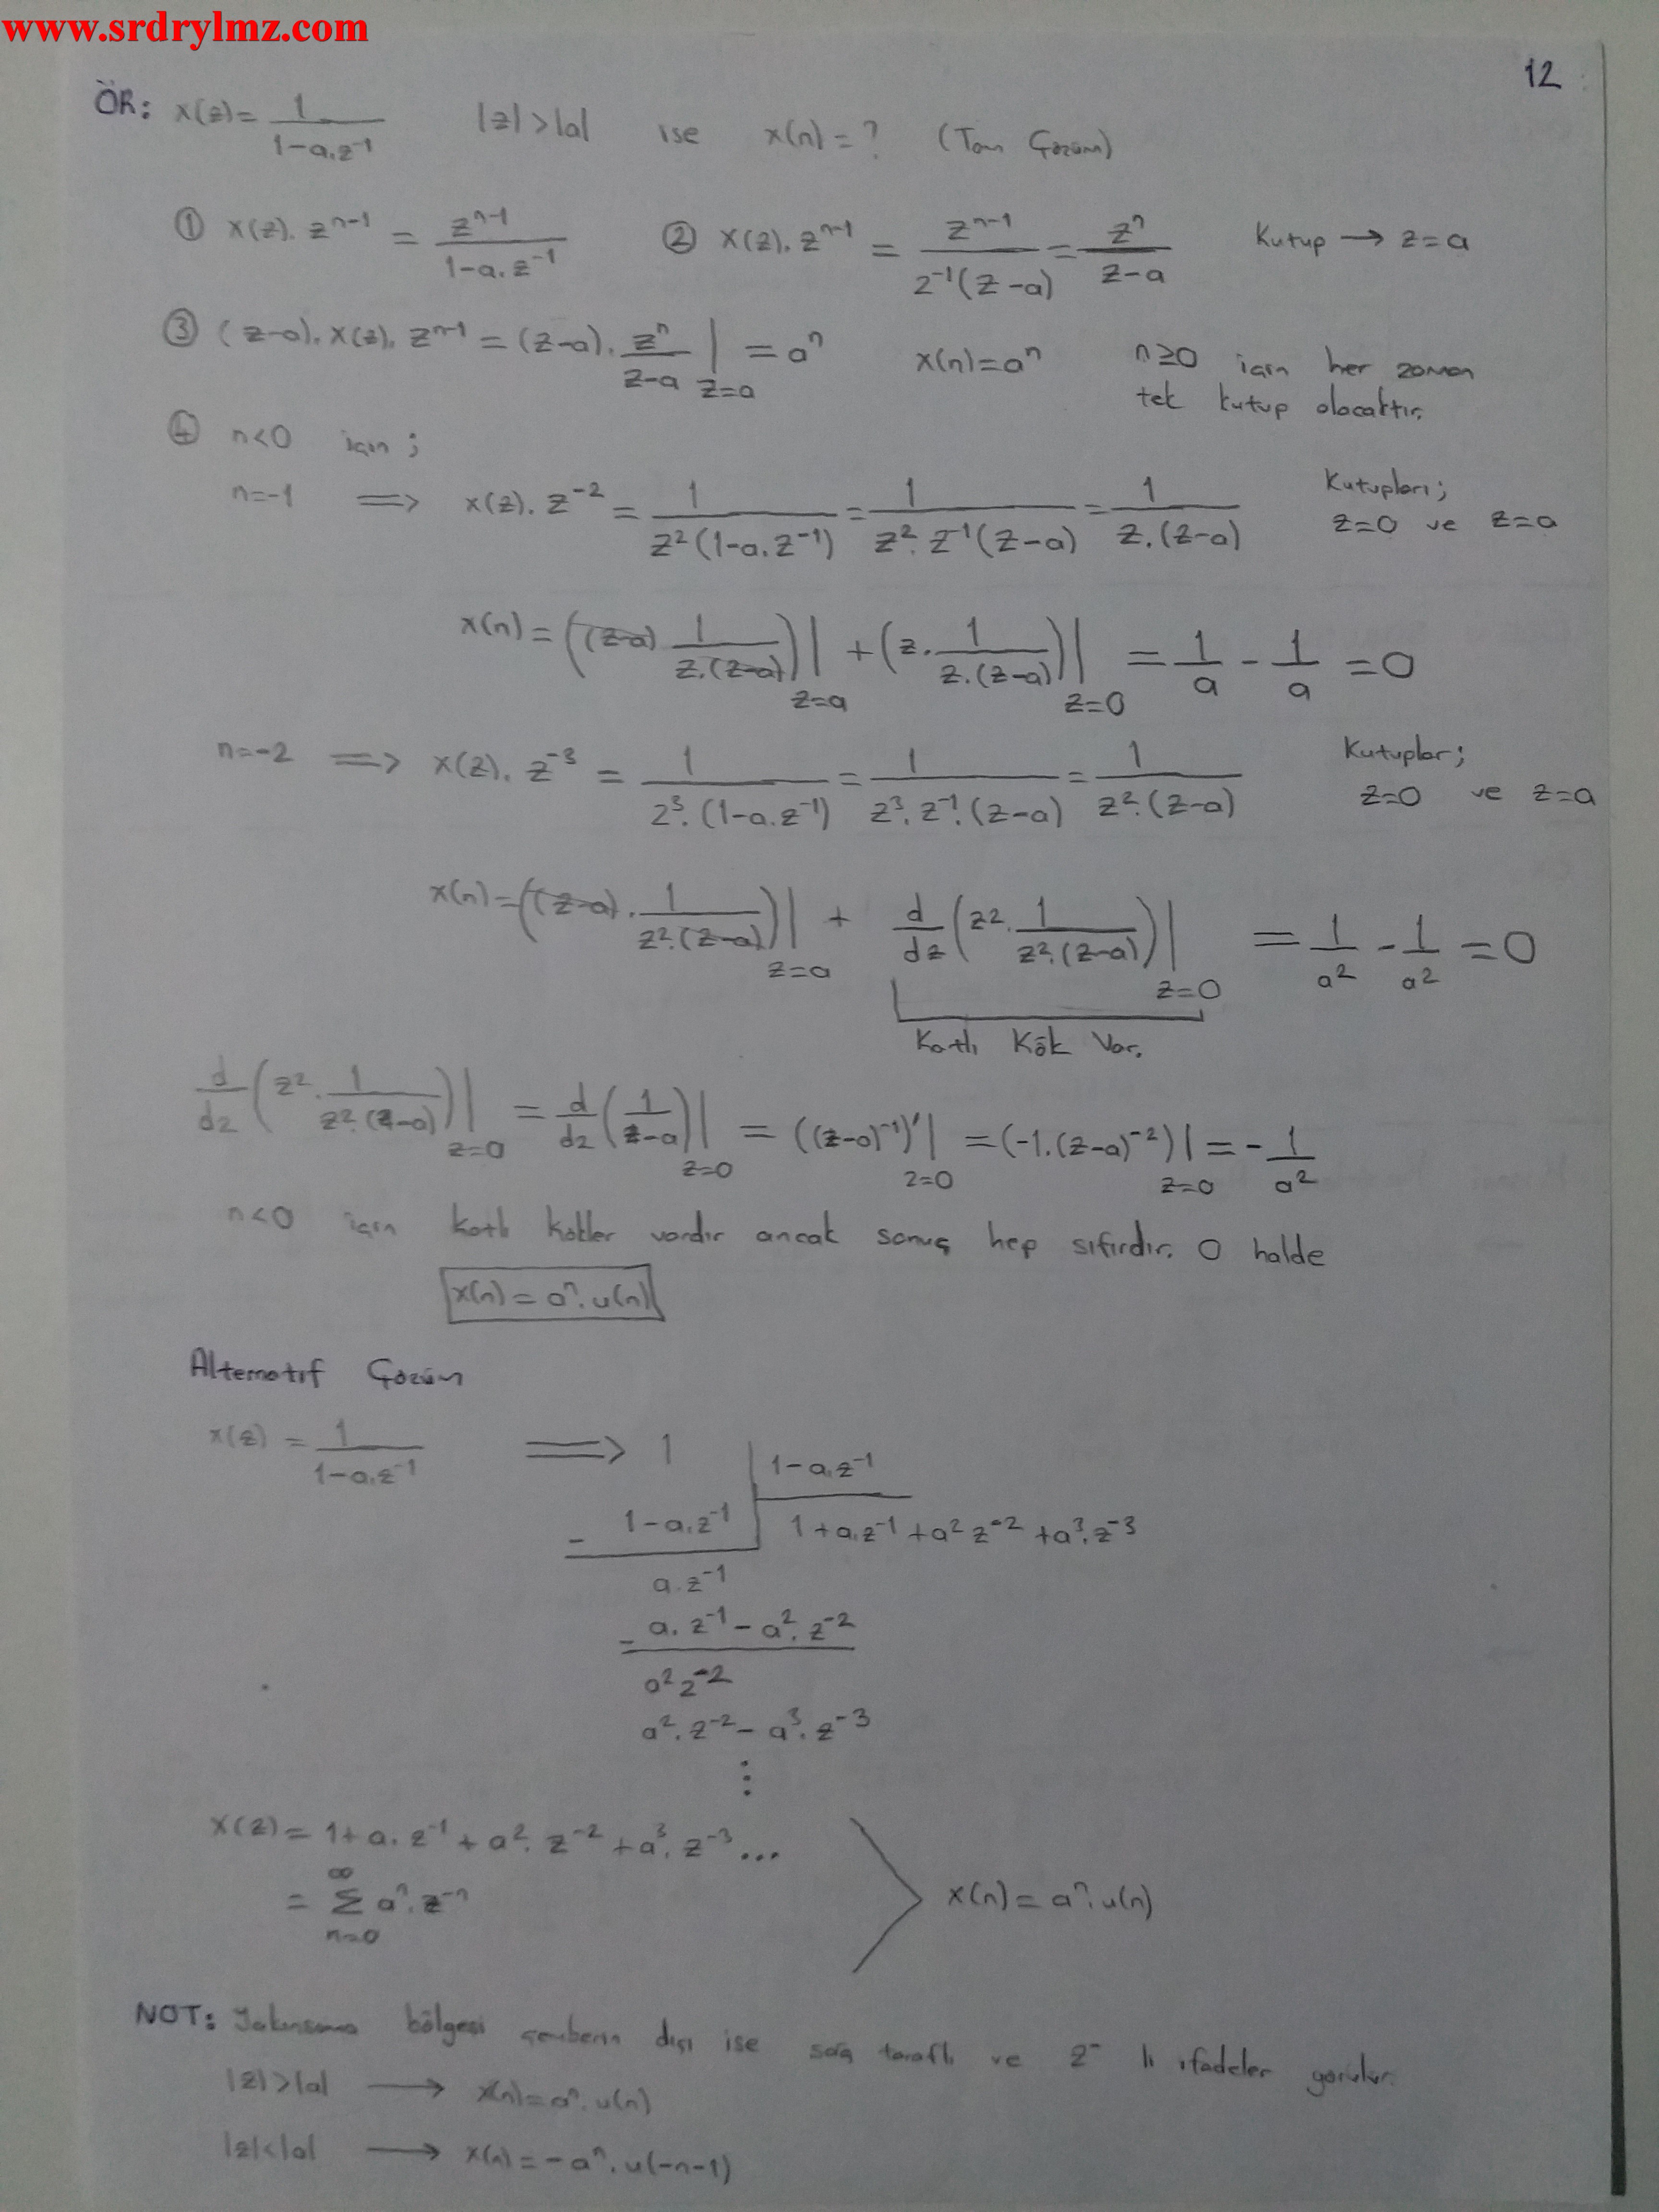 www.srdrylmz.com
12
ÖR: x(z) = 1 / (1-a.z⁻¹) |z|>|a| ise x(n)=? (Tam Çözüm)
① x(z).zⁿ⁻¹ = zⁿ⁻¹ / (1-a.z⁻¹) ② x(z).zⁿ⁻¹ = zⁿ⁻¹ / (z⁻¹(z-a)) = zⁿ / (z-a) Kutup → z=a
③ (z-a).x(z).zⁿ⁻¹ = (z-a).zⁿ/(z-a) | z=a = aⁿ x(n)=aⁿ n≥0 için her zaman
tek kutup olacaktır.
④ n<0 için;
n=-1 ⟹ x(z).z⁻² = 1 / (z²(1-a.z⁻¹)) = 1 / (z².z⁻¹(z-a)) = 1 / (z.(z-a)) Kutupları;
z=0 ve z=a
x(n) = ((z-a) 1/(z.(z-a))) | z=a + (z.1/(z.(z-a))) | z=0 = 1/a - 1/a = 0
n=-2 ⟹ x(z).z⁻³ = 1 / (z³.(1-a.z⁻¹)) = 1 / (z³.z⁻¹.(z-a)) = 1 / (z².(z-a)) Kutuplar;
z=0 ve z=a
x(n) = ((z-a).1/(z².(z-a))) | z=a + d/dz (z².1/(z².(z-a))) | z=0 = 1/a² - 1/a² = 0
Katlı Kök Var.
d/dz (z².1/(z².(z-a))) | z=0 = d/dz (1/(z-a)) | z=0 = ((z-a)⁻¹)' | z=0 = (-1.(z-a)⁻²) | z=0 = -1/a²
n<0 için katlı kökler vardır ancak sonuç hep sıfırdır. O halde
x(n) = aⁿ.u(n)
Alternatif Çözüm
x(z) = 1 / (1-a.z⁻¹) ⟹ 1 | 1-a.z⁻¹
- 1-a.z⁻¹ | 1+a.z⁻¹+a²z⁻²+a³.z⁻³
a.z⁻¹
- a.z⁻¹-a².z⁻²
a²z⁻²
a².z⁻²-a³.z⁻³
⋮
X(z) = 1+a.z⁻¹+a².z⁻²+a³.z⁻³...
= ∞ Σ n=0 aⁿ.z⁻ⁿ x(n) = aⁿ.u(n)
NOT: Yakınsama bölgesi çemberin dışı ise sağ taraflı ve z⁻ lı ifadeler görülür.
|z|>|a| → x(n)=aⁿ.u(n)
|z|<|a| → x(n)=-aⁿ.u(-n-1)